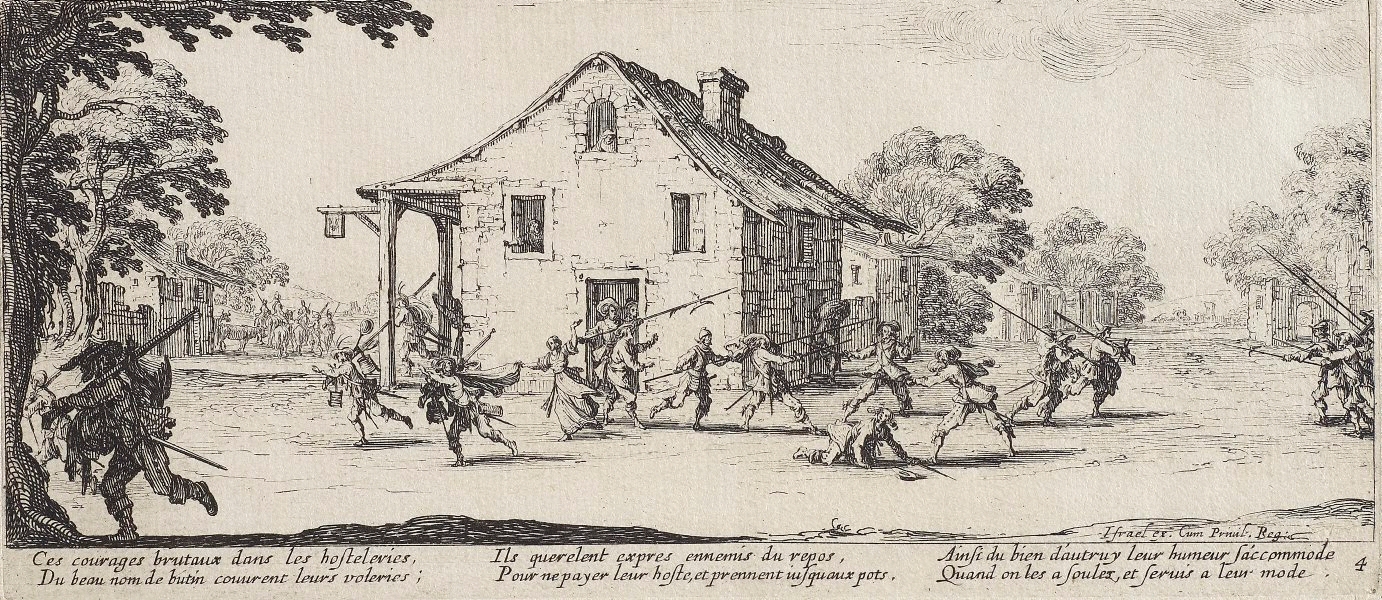 Israel ex. Cum Privil. Reg.
Ces courages brutaux dans les hosteleries,
Du beau nom de butin couurent leurs voleries ;
Ils querelent expres ennemis du repos,
Pour ne payer leur hoste, et prennent iusqu'aux pots.
Ainsi du bien d'autruy leur humeur s'accommode
Quand on les a soulez, et seruis a leur mode .
4